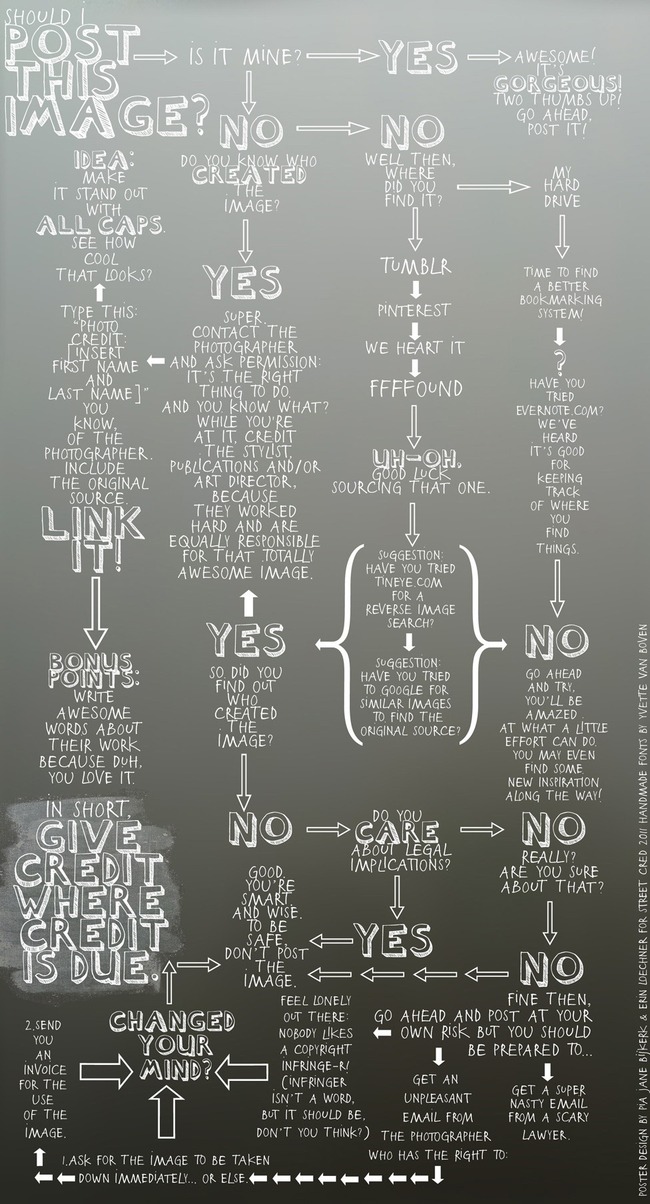 SHOULD I
POST
THIS
IMAGE?
IS IT MINE?
YES
AWESOME!
IT'S
GORGEOUS!
TWO THUMBS UP!
GO AHEAD,
POST IT!
NO
DO YOU KNOW WHO
CREATED
THE
IMAGE?
NO
WELL THEN,
WHERE
DID YOU
FIND IT?
MY
HARD
DRIVE
TIME TO FIND
A BETTER
BOOKMARKING
SYSTEM!
?
HAVE YOU
TRIED
EVERNOTE.COM?
WE'VE
HEARD
IT'S GOOD
FOR
KEEPING
TRACK
OF WHERE
YOU
FIND
THINGS.
TUMBLR
PINTEREST
WE HEART IT
FFFFOUND
UH-OH.
GOOD LUCK
SOURCING THAT ONE.
SUGGESTION:
HAVE YOU TRIED
TINEYE.COM
FOR A
REVERSE IMAGE
SEARCH?
SUGGESTION:
HAVE YOU TRIED
TO GOOGLE FOR
SIMILAR IMAGES
TO FIND THE
ORIGINAL SOURCE?
NO
GO AHEAD
AND TRY,
YOU'LL BE
AMAZED
AT WHAT A LITTLE
EFFORT CAN DO.
YOU MAY EVEN
FIND SOME
NEW INSPIRATION
ALONG THE WAY!
YES
SUPER.
CONTACT THE
PHOTOGRAPHER
AND ASK PERMISSION:
IT'S THE RIGHT
THING TO DO.
AND YOU KNOW WHAT?
WHILE YOU'RE
AT IT, CREDIT
THE STYLIST,
PUBLICATIONS AND/OR
ART DIRECTOR,
BECAUSE
THEY WORKED
HARD AND ARE
EQUALLY RESPONSIBLE
FOR THAT TOTALLY
AWESOME IMAGE.
YES
SO, DID YOU
FIND OUT
WHO
CREATED
THE
IMAGE?
IDEA:
MAKE
IT STAND OUT
WITH
ALL CAPS.
SEE HOW
COOL
THAT LOOKS?
TYPE THIS:
"PHOTO
CREDIT:
[INSERT
FIRST NAME
AND
LAST NAME]"
YOU
KNOW,
OF THE
PHOTOGRAPHER.
INCLUDE
THE ORIGINAL
SOURCE.
LINK
IT!
BONUS
POINTS:
WRITE
AWESOME
WORDS ABOUT
THEIR WORK
BECAUSE DUH,
YOU LOVE IT.
IN SHORT,
GIVE
CREDIT
WHERE
CREDIT
IS DUE.
NO
DO YOU
CARE
ABOUT LEGAL
IMPLICATIONS?
NO
REALLY?
ARE YOU SURE
ABOUT THAT?
YES
GOOD,
YOU'RE
SMART
AND WISE.
TO BE
SAFE,
DON'T POST
THE
IMAGE.
NO
FINE THEN,
GO AHEAD AND POST AT YOUR
OWN RISK BUT YOU SHOULD
BE PREPARED TO...
GET A SUPER
NASTY EMAIL
FROM A SCARY
LAWYER.
GET AN
UNPLEASANT
EMAIL FROM
THE PHOTOGRAPHER
WHO HAS THE RIGHT TO:
FEEL LONELY
OUT THERE:
NOBODY LIKES
A COPYRIGHT
INFRINGE-R!
(INFRINGER
ISN'T A WORD,
BUT IT SHOULD BE,
DON'T YOU THINK?)
1.ASK FOR THE IMAGE TO BE TAKEN
DOWN IMMEDIATELY... OR ELSE.
2.SEND
YOU
AN
INVOICE
FOR THE
USE
OF THE
IMAGE.
CHANGED
YOUR
MIND?
POSTER DESIGN BY PIA JANE BIJKERK & ERIN LOECHNER FOR STREET CRED 2011 HANDMADE FONTS BY YVETTE VAN BOVEN